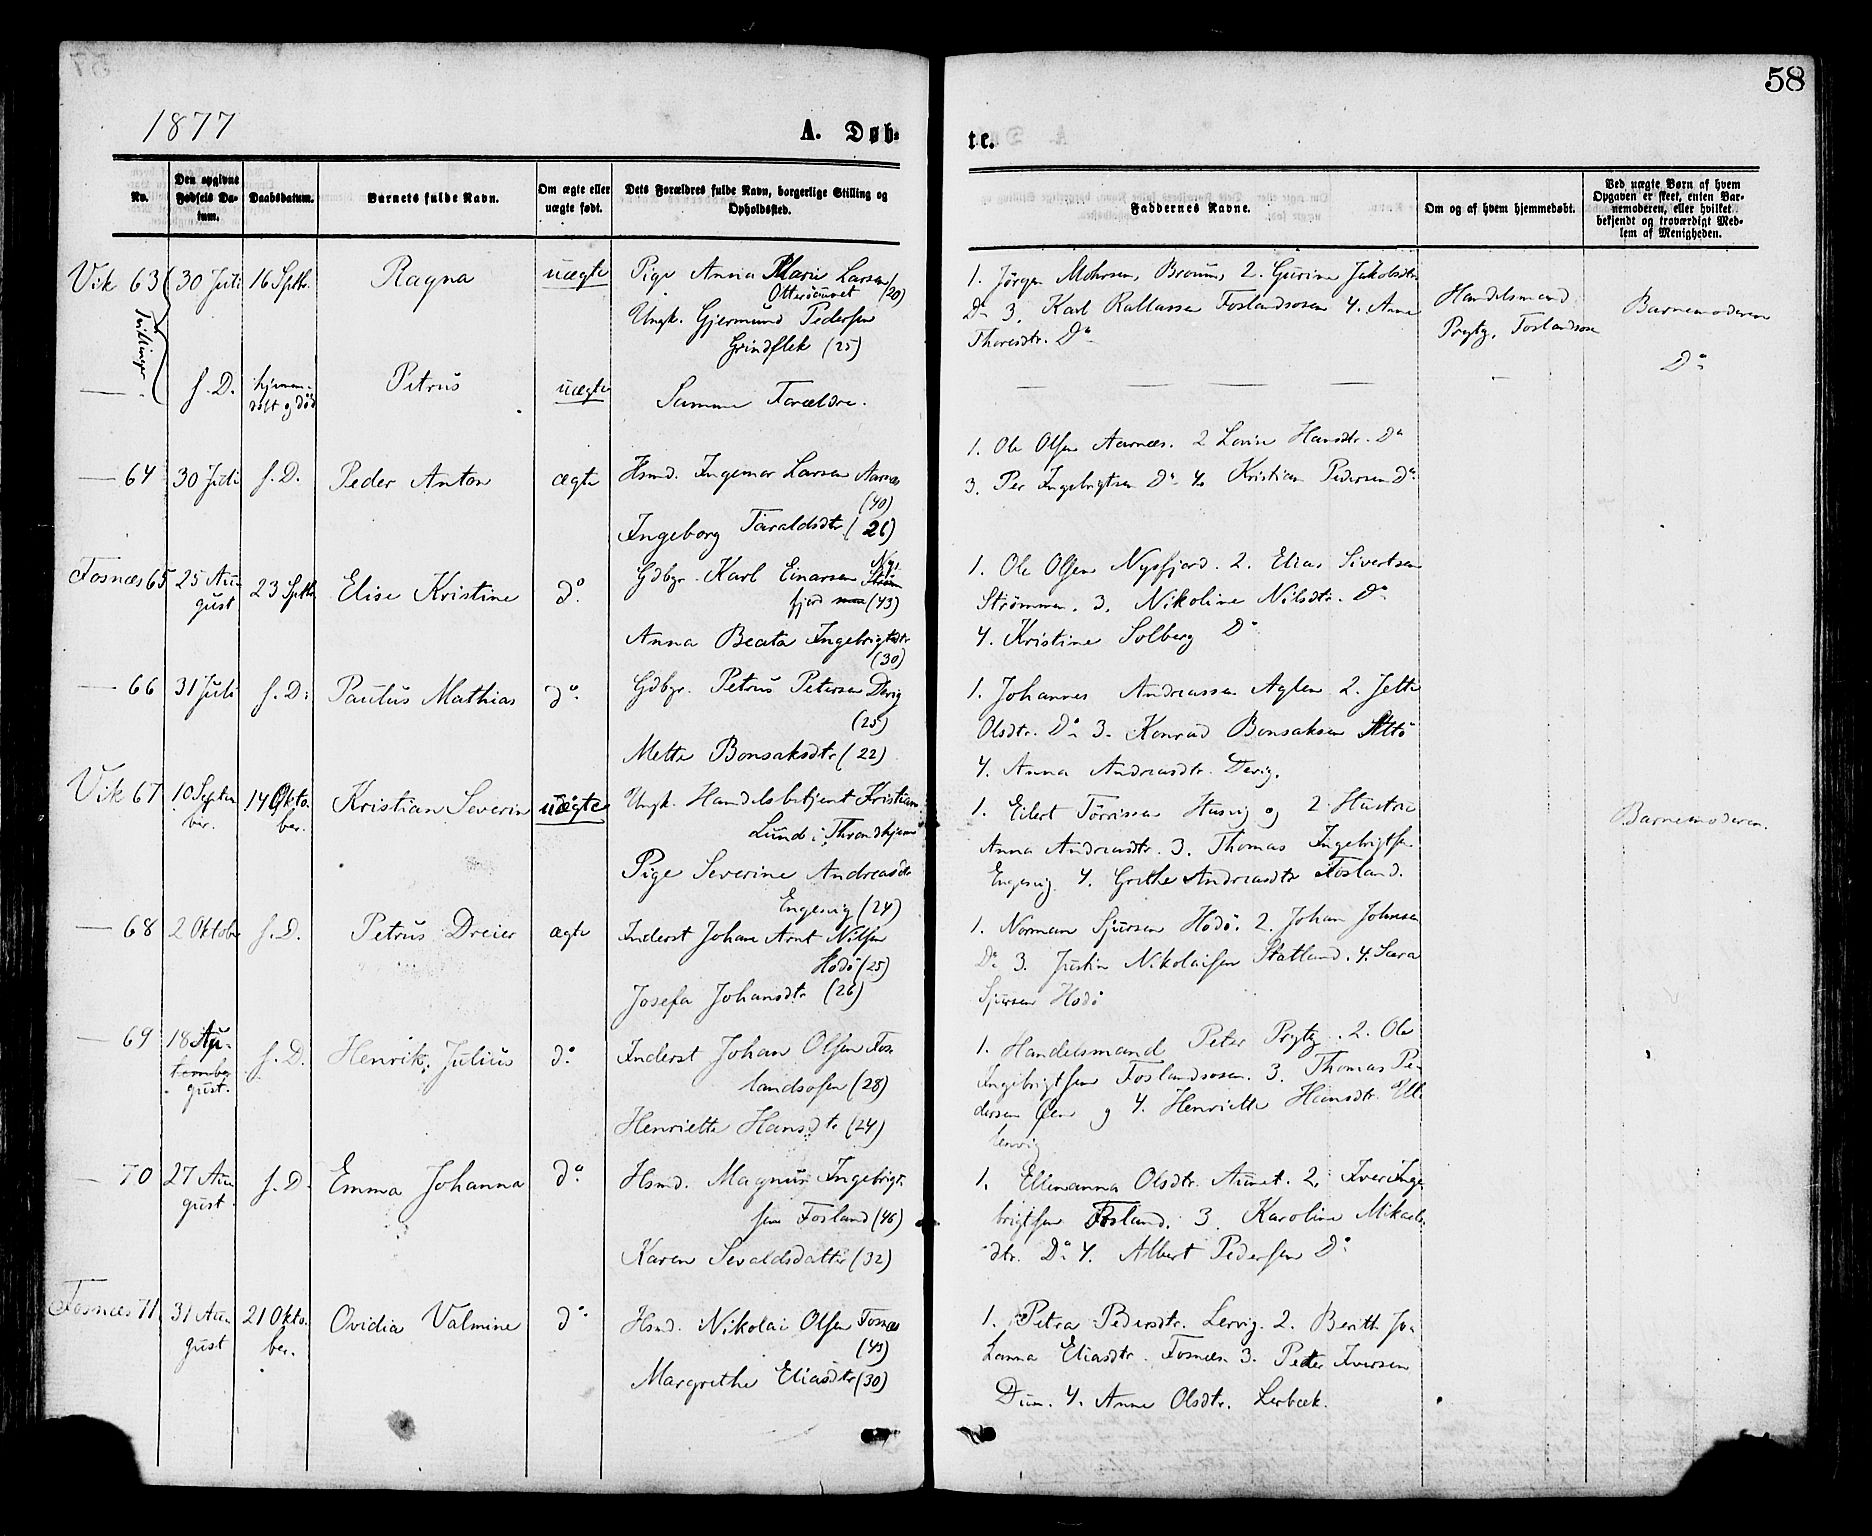 58
1877
A. Døb-
te.
No.
Den opgivne Fødsels Da-
tum.
Daabsdatum.
Barnets fulde Navn.
Om ægte eller
uægte født.
Dets Forældres fulde Navn, borgerlige Stilling og
Opholdssted.
Faddernes Navne.
Om og af hvem hjemmedøbt.
Ved uægte Børn af hvem
Opgaven er skeet, enten Bar-
nemoderen, eller hvilket
bekjendt og troværdigt Med-
lem af Menigheden.
Vik 63
Tvillinger
30 Juli
16 Septbr.
Ragna
uægte
Pige Anna Marie Larsen
Otterøunet (20)
Ungk. Gjermund Pedersen
Grindflek (25)
1. Jørgen Mohrsen Braun, 2. Gurine Jakobsdtr.
Do 3. Karl Foslandsosen 4. Anne
Thoresdtr. Do
Handelsmand
Prytz, Foslandsosen
Barnemoderen
—
s. D.
hjemme-
døbt og død
Petrus
uægte
Samme Forældre.
Do
— 64
30 Juli
s. D.
Peder Anton
ægte
Hsmd. Ingemar Larsen Aarnæs
(40)
Ingeborg Taraldsdtr. (26)
1. Ole Olsen Aarnæs. 2 Lovise Hansdtr. Do
3. Per Ingebrigtsen Do 4. Kristian Pedersen Do
Fosnæs 65
25 Au-
gust
23 Septbr.
Elise Kristine
do
Gdbgr. Karl Einarsen Nys-
fjord (43)
Anna Beata Ingebrigtsdtr.
(30)
1. Ole Olsen Nysfjord. 2. Elias Sivertsen
Strømmen. 3. Nikoline Nilsdtr. Do
4. Kristine Solberg Do
— 66
31 Juli
s. D.
Paulus Mathias
do
Gdbgr. Petrus Petersen Devig
(25)
Mette Bonsaksdtr. (22)
1. Johannes Andreassen Aglen 2. Jette
Olsdtr. Do 3. Konrad Bonsaksen
4. Anna Andreasdtr. Devig.
Vik 67
10 Septem-
ber.
14 Okto-
ber.
Kristian Severin
uægte
Ungk. Handelsbetjent Kristian
Lund i Throndhjem
Pige Severine Andreasdtr.
Engesvig (24)
1. Eilert Tørrissen Husvig og 2 Hustru
Anna Andreasdtr. 3. Thomas Ingebrigtsen
Engesvig 4. Grethe Andreasdtr. Fosland.
Barnemoderen.
— 68
2 Oktober
s. D.
Petrus Dreier
ægte
Inderst Johan Arnt Nilsen
Hodø (25)
Josefa Johansdtr. (26)
1. Norman Sjursen Hodø. 2. Johan Johnsen
Do 3. Justin Nikolaisen Statland. 4. Sara
Sjursen Hodø
— 69
18 Au-
gust.
s. D.
Henrik Julius
do
Inderst Johan Olsen Fos-
landsosen (28)
Henriette Hansdtr. (24)
1. Handelsmand Peter Prytz. 2. Ole
Ingebrigtsen Foslandsosen. 3. Thomas Pe-
dersen Øen og 4. Henriette Hansdtr. El-
lenvig
— 70
27 Au-
gust
s. D.
Emma Johanna
do
Hsmd. Magnus Ingebrigt-
sen Fosland (46)
Karen Sevaldsdatter (32)
1. Ellenanna Olsdtr. Aunet. 2. Iver Inge-
brigtsen Fosland. 3. Karoline Mikaels-
dtr. Do 4. Albert Pedersen Do
Fosnæs 71
31 Au-
gust
21 Okto-
ber.
Ovidia Valmine
do
Hsmd. Nikolai Olsen Fosnæs
(43)
Margrethe Eliasdtr. (30)
1. Petra Pedersdtr. Lervig. 2. Berith Jo-
hanna Eliasdtr. Fosnæs. 3. Peder Iversen
Duun. 4. Anne Olsdtr. Lerbæk.